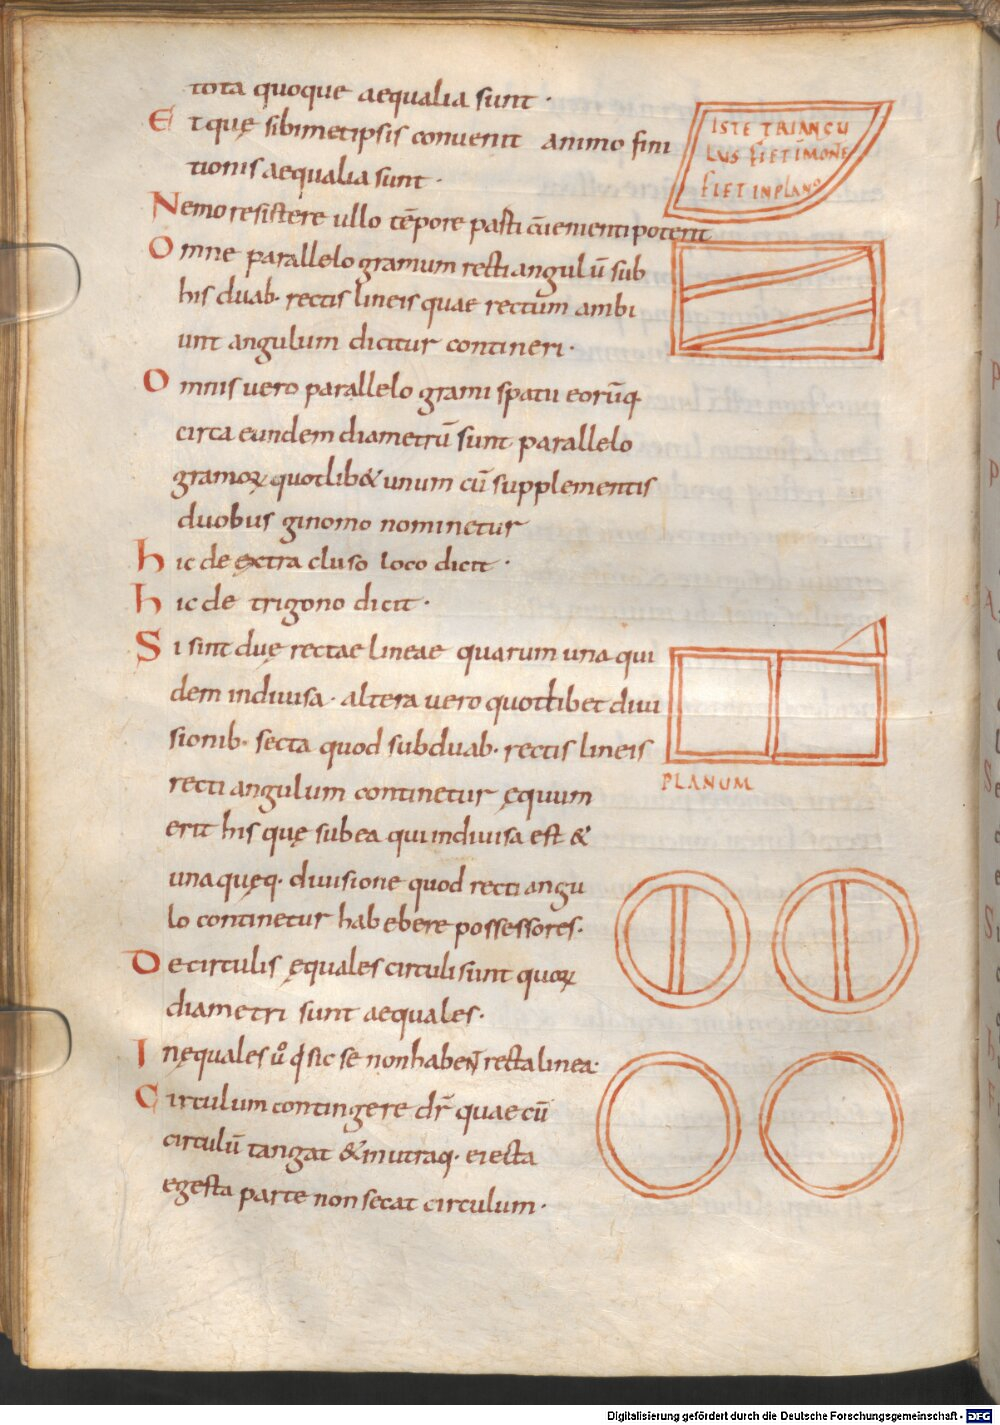 tota quoque aequalia sunt ·
Et quę sibimetipsis conueniunt animo fini
tionis aequalia sunt ·
Nemo resistere ullo tēpore pasti cū ementi poterit
Omne parallelo gramum recti angulū sub
his duab· rectis lineis quae rectum ambi
unt angulum dicitur contineri·
Omnis uero parallelo grami spatii eorūq
circa eundem diametrū sunt parallelo
gramoꝝ quodlib& unum cū supplementis
duobus ginomo nominetur
hic de extra cluso loco dicit ·
hic de trigono dicit ·
Si sint duę rectae lineae quarum una qui
dem indiuisa · altera uero quotlibet diui
sionib· secta quod subduab· rectis lineis
recti angulum continetur ęquum
erit his quę sub ea qui indiuisa est &
una quęq· diuisione quod recti angu
lo continetur habebere possessores·
De circulis ęquales circuli sunt quoꝝ
diametri sunt aequales·
Inęquales u̇o sic se non haben̄ recta linea·
Circulum contingere dr̄ quae cū
circulū tangat & in utraq· eiecta
egesta parte non secat circulum·
ISTE TRIANGU
LUS FIET IMONE
FIET INPLANO
PLANUM
Digitalisierung gefördert durch die Deutsche Forschungsgemeinschaft - DFG